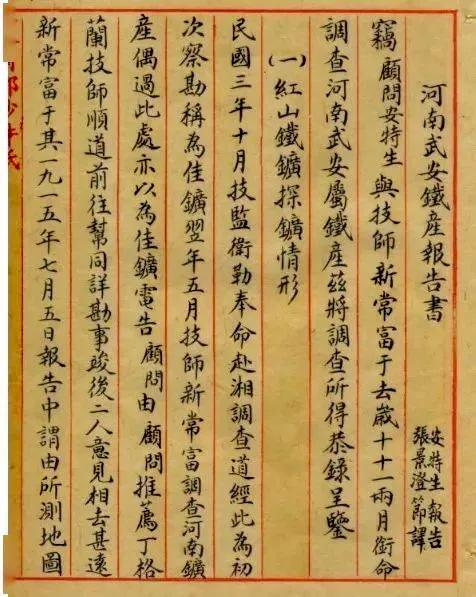 河南武安鐵產報告書
安特生 報告
張景澄 節譯
竊 顧問安特生 與技師新常富于去歲十十一兩月銜命
調查河南武安屬鐵產茲將調查所得恭錄呈鑒
(一)紅山鐵鑛探鑛情形
民國三年十月技監衛勒奉命赴湘調查道經此為初
次察勘稱為佳鑛翌年五月技師新常富調查河南鑛
產偶過此處亦以為佳鑛電告 顧問由 顧問推薦丁格
蘭技師順道前往幫同詳勘事竣後二人意見相去甚遠
新常富于其一九一五年七月五日報告中謂由所測地圖